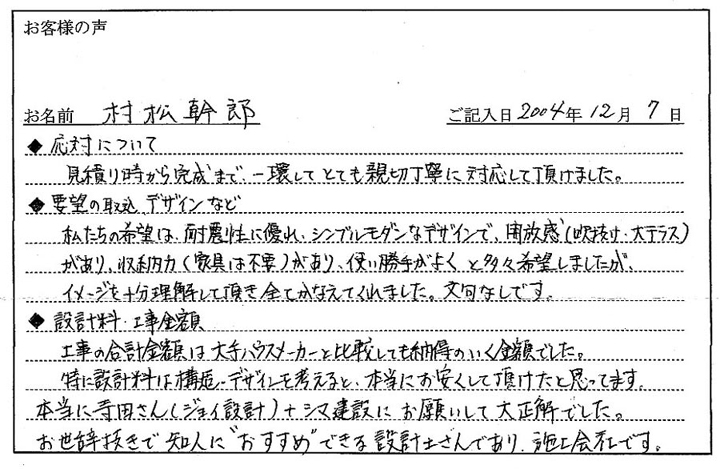 お客様の声
お名前 村松幹郎 ご記入日 2004年 12月 7日
◆ 応対について
見積り時から完成まで、一環してとても親切丁寧に対応して頂けました。
◆ 要望の取込、デザインなど
私たちの希望は、耐震性に優れ、シンプルモダンなデザインで、開放感(吹抜け・大テラス)
があり、収納力(家具は不要)があり、使い勝手がよくと多々希望しましたが、
イメージを十分理解して頂き全てかなえてくれました。文句なしです。
◆ 設計料・工事金額
工事の合計金額は大手ハウスメーカーと比較しても納得のいく金額でした。
特に設計料は構造、デザインを考えると、本当にお安くして頂けたと思ってます。
本当に寺田さん(ジョイ設計)+シマ建設にお願いして大正解でした。
お世辞抜きで知人に"おすすめ"できる設計士さんであり、施工会社です。